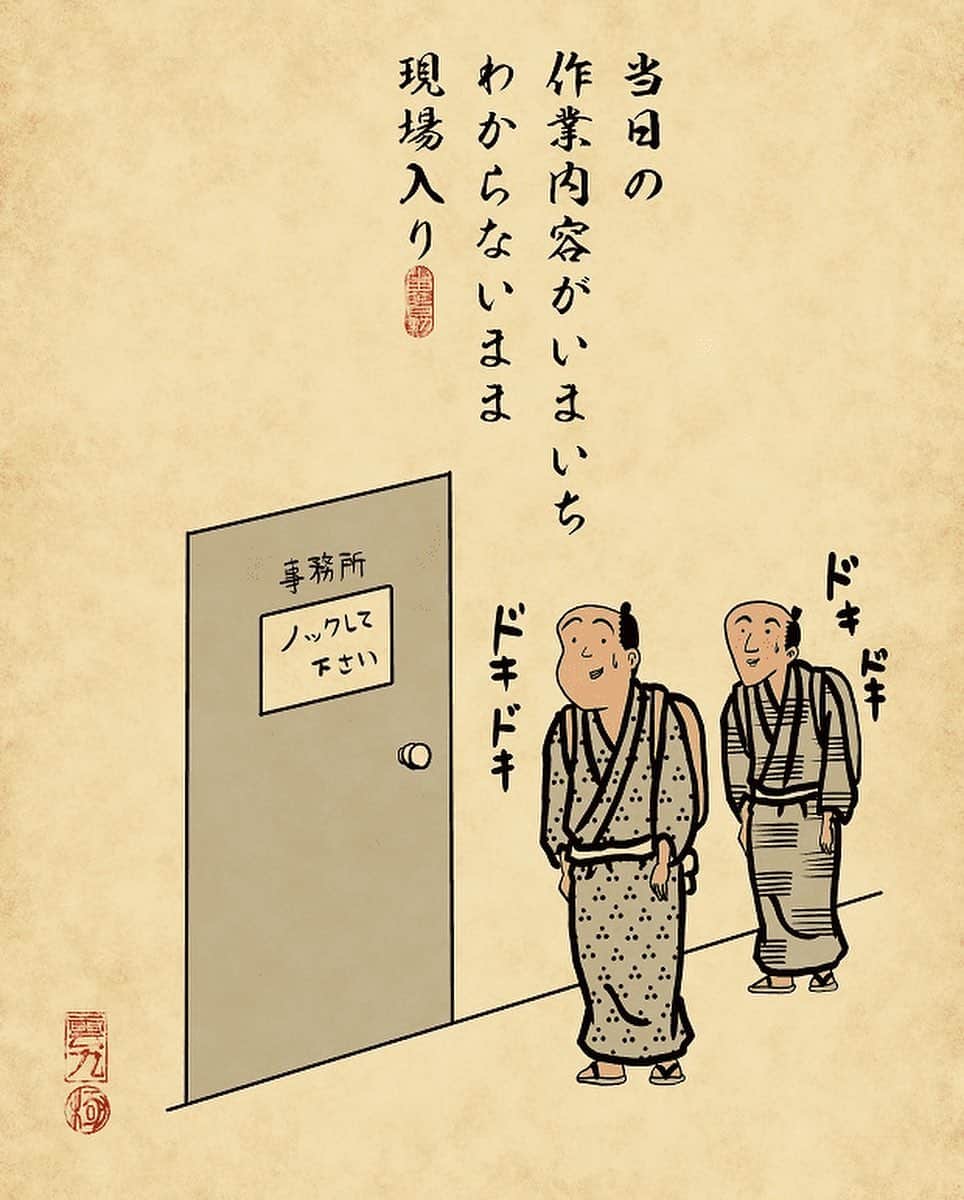 当日の
作業内容がいまいち
わからないまま
現場入り
事務所
ノックして
下さい
ドキドキ
ドキ
ドキ